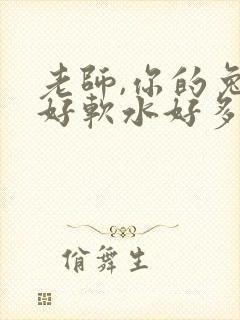 老師,你的兔
好軟水好多
俏舞生